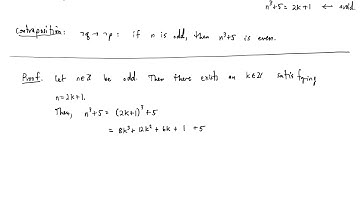 n³+5 = 2k+1 ← avoid
contraposition: ¬q → ¬p : if n is odd, then n³+5 is even.
Proof. Let n∈ℤ be odd. Then there exists an k∈ℤ satisfying
n=2k+1.
Then, n³+5 = (2k+1)³ +5
= 8k³ + 12k² + 6k + 1 +5